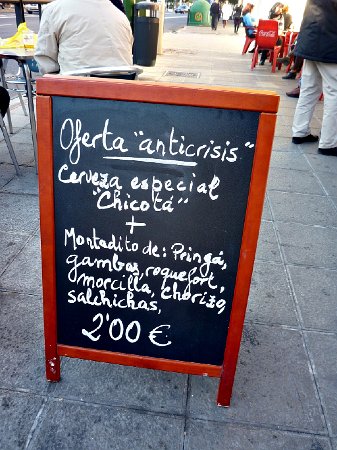 Oferta "anticrisis"
Cerveza especial
"Chicotá"
+
Montadito de: Pringá,
gambas, roquefort,
morcilla, chorizo,
salchichas,
2'00 €
Coca-Cola